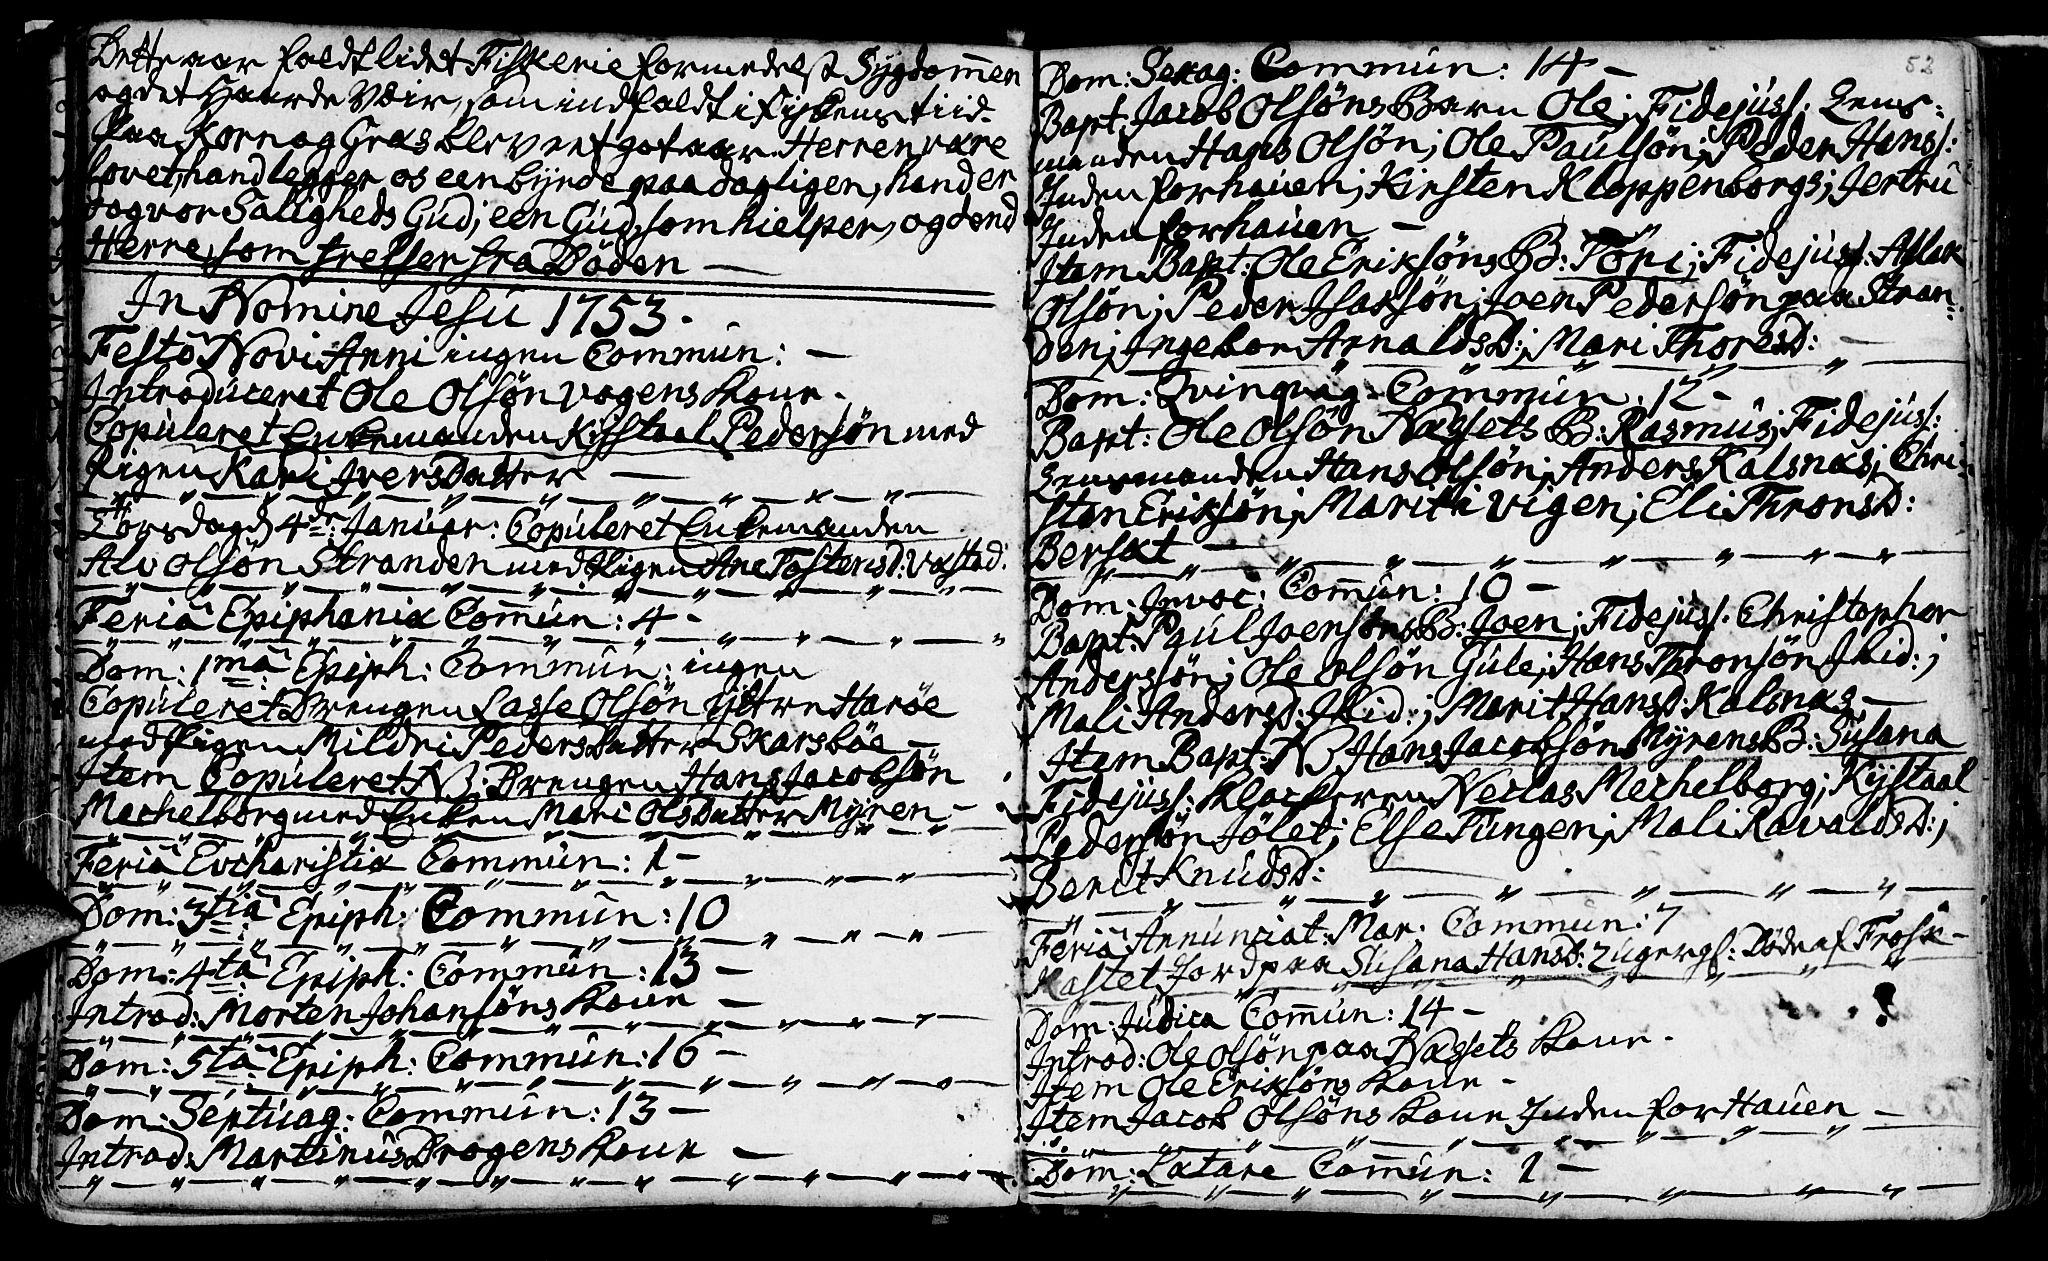 Dette aar faldt lidet Fiskerie formedelst Sygdom̄en
og det Haarde Veir, som indfaldt i fiskens tiid.
Paa Korn og Græs blev et got aar. Herren være
lovet, hand legger os een byrde paa dagligen, hand er
dog vor Saligheds Gud; een Gud som hielper, og dend
Herre, som frelser fra Döden —
In Nomine Jesu 1753.
Festo Novi Anni ingen Commun: —
Introduceret Ole Olsön Vogens Kone.
Copuleret Enkemanden Kystaal Pedersön med
Pigen Kari Ivers Datter —
Torsdag d. 4de Januar: Copuleret Enkemanden
Alv Olsön Stranden med Pigen Ane Tostensd: Vastad.
Feriâ Epiphaniæ Com̄un: 4 —
Dom: 1mâ Epiph: Commun: ingen
Copuleret Drengen Lasse Olsön Ystre Haröe
med Pigen Mildri Peders Datter Skarsböe —
Item Copuleret NB: Drengen Hans Jacobsön
Mechelborg med Enken Mari Ols Datter Myren —
Feriâ Evcharistiæ Commun: 1 —
Dom: 3tiâ Epiph: Commun: 10
Dom: 4tâ Epiph: Commun: 13 —
Introd: Morten Johansöns Kone —
Dom: 5tâ Epiph: Commun: 16 —
Dom: Septuag: Commun: 13 —
Introd: Martinus Drogens Kone —
52
Dom: Sexag: Commun: 14 —
Bapt: Jacob Olsöns Barn Ole; Fidejuss: Lens-
manden Hans Olsön; Ole Paulsön; Peder Hanss:
Inden forhauen; Kirsten Kloppenborgs; Jertru
Inden forhauen —
Item Bapt: Ole Eriksöns B: Töri; Fidejuss: Aslak
Olsön; Peder Isaksön; Joen Pedersön paa Stran-
den; Ingebor Arnaldsd:; Mari Thoresd: —
Dom: Qvinqvag: Commun: 12 —
Bapt: Ole Olsön Næssets B: Rasmus; Fidejuss:
Lensmanden Hans Olsön; Anders Kalsnæs; Chri-
sten Eriksön; Marit i Vigen; Eli Thronsd:
Bersæt —
Dom: Invoc: Com̄un: 10 —
Bapt: Paul Joensöns B: Joen; Fidejuss: Christopher
Anderssön; Ole Olsön Gule; Hans Thronsön Ibid:;
Mali Andersd: Ibid:; Marit Hansd: Kalsnæs —
Item Bapt: NB Hans Jacobsön Myrens B: Susana
Fidejuss: Klockeren Neclas Mechelborg; Kystaal
Pedersön Jölet; Else Tungen; Mali Ravaldsd:;
Berit Knudsd:
Feriâ Annunciat: Mar: Commun: 7
Kastet Jord paa Susana Hansd: 2 uger gl: Döde af Frosk —
Dom: Judica Com̄un: 14 —
Introd: Ole Olsön paa Næssets Kone.
Item Ole Eriksöns Kone —
Item Jacob Olsöns Kone Inden for Hauen —
Dom: Lætare Com̄un: 1 —